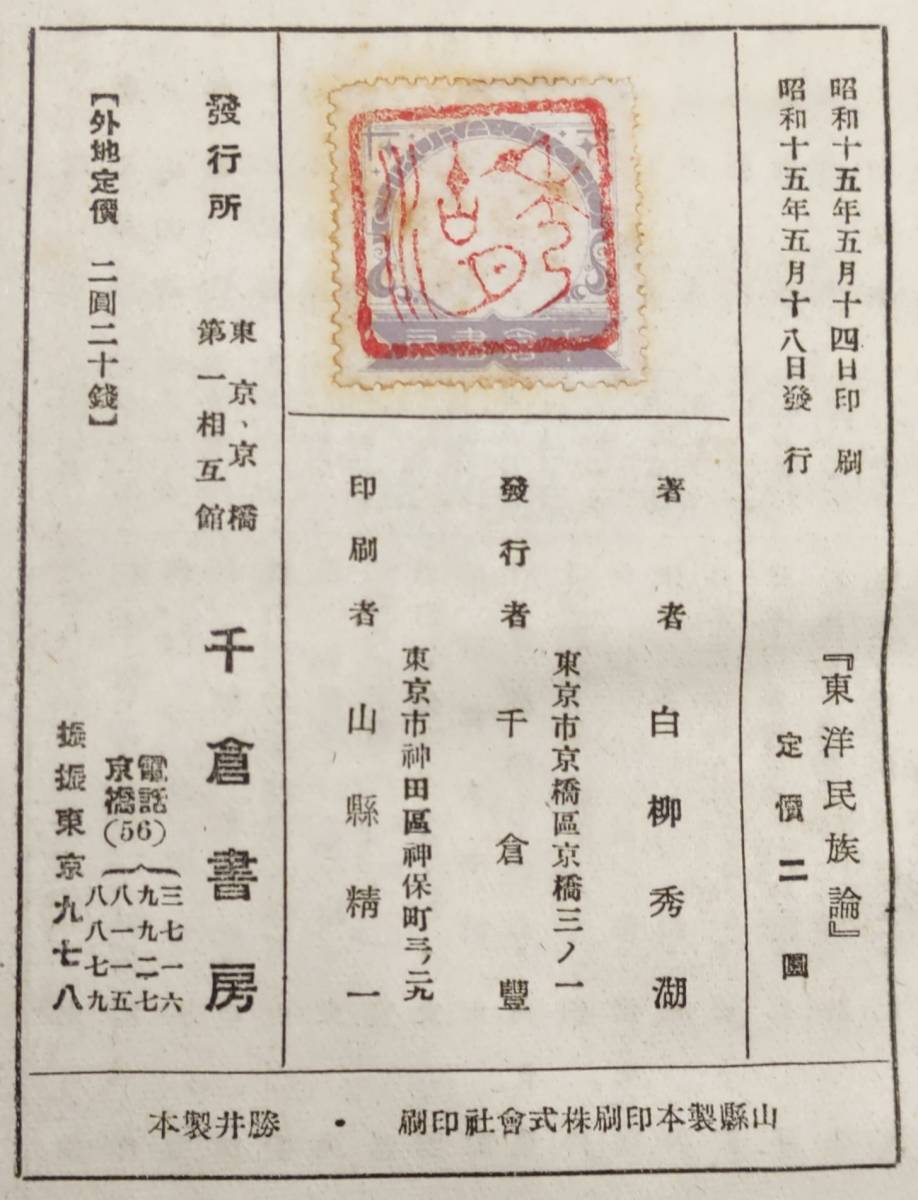 昭和十五年五月十四日印刷
昭和十五年五月十八日發行
『東洋民族論』
定價二圓
千倉書房
著者 白柳秀湖
東京市京橋區京橋三ノ一
發行者 千倉豐
東京市神田區神保町三ノ二九
印刷者 山縣精一
發行所
東京、京橋
第一相互館
千倉書房
電話
京橋
(56)
三七一六
九九二七
八一一五
八八七九
振振東京九七八
【外地定價 二圓二十錢】
山縣製本印刷株式會社印刷 ・ 勝井製本